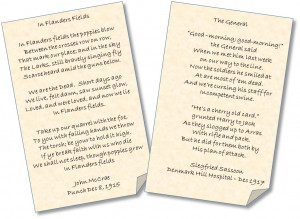 In Flanders Fields
In Flanders fields the poppies blow
Between the crosses row on row,
That mark our place; and in the sky
The Larks, still bravely singing fly
Scarce heard amid the guns below.
We are the Dead. Short days ago
We lived, felt dawn, saw sunset glow,
Loved, and were loved, and now we lie
In Flanders fields.
Take up our quarrel with the foe,
To you with failing hands we throw
The torch; be yours to hold it high.
If ye break faith with us who die
We shall not sleep, though poppies grow
In Flanders fields.
John McCrae
Punch Dec 8, 1915
The General
"Good-morning; good-morning!"
the General said
When we met him last week
on our way to the line.
Now the soldiers he smiled at
are most of 'em dead,
And we're cursing his staff for
incompetent swine.
"He's a cheery old card,"
grunted Harry to Jack
As they slogged up to Arras
with rifle and pack.
But he did for them both by
his plan of attack.
Siegfried Sassoon
Denmark Hill Hospital - Dec 1917